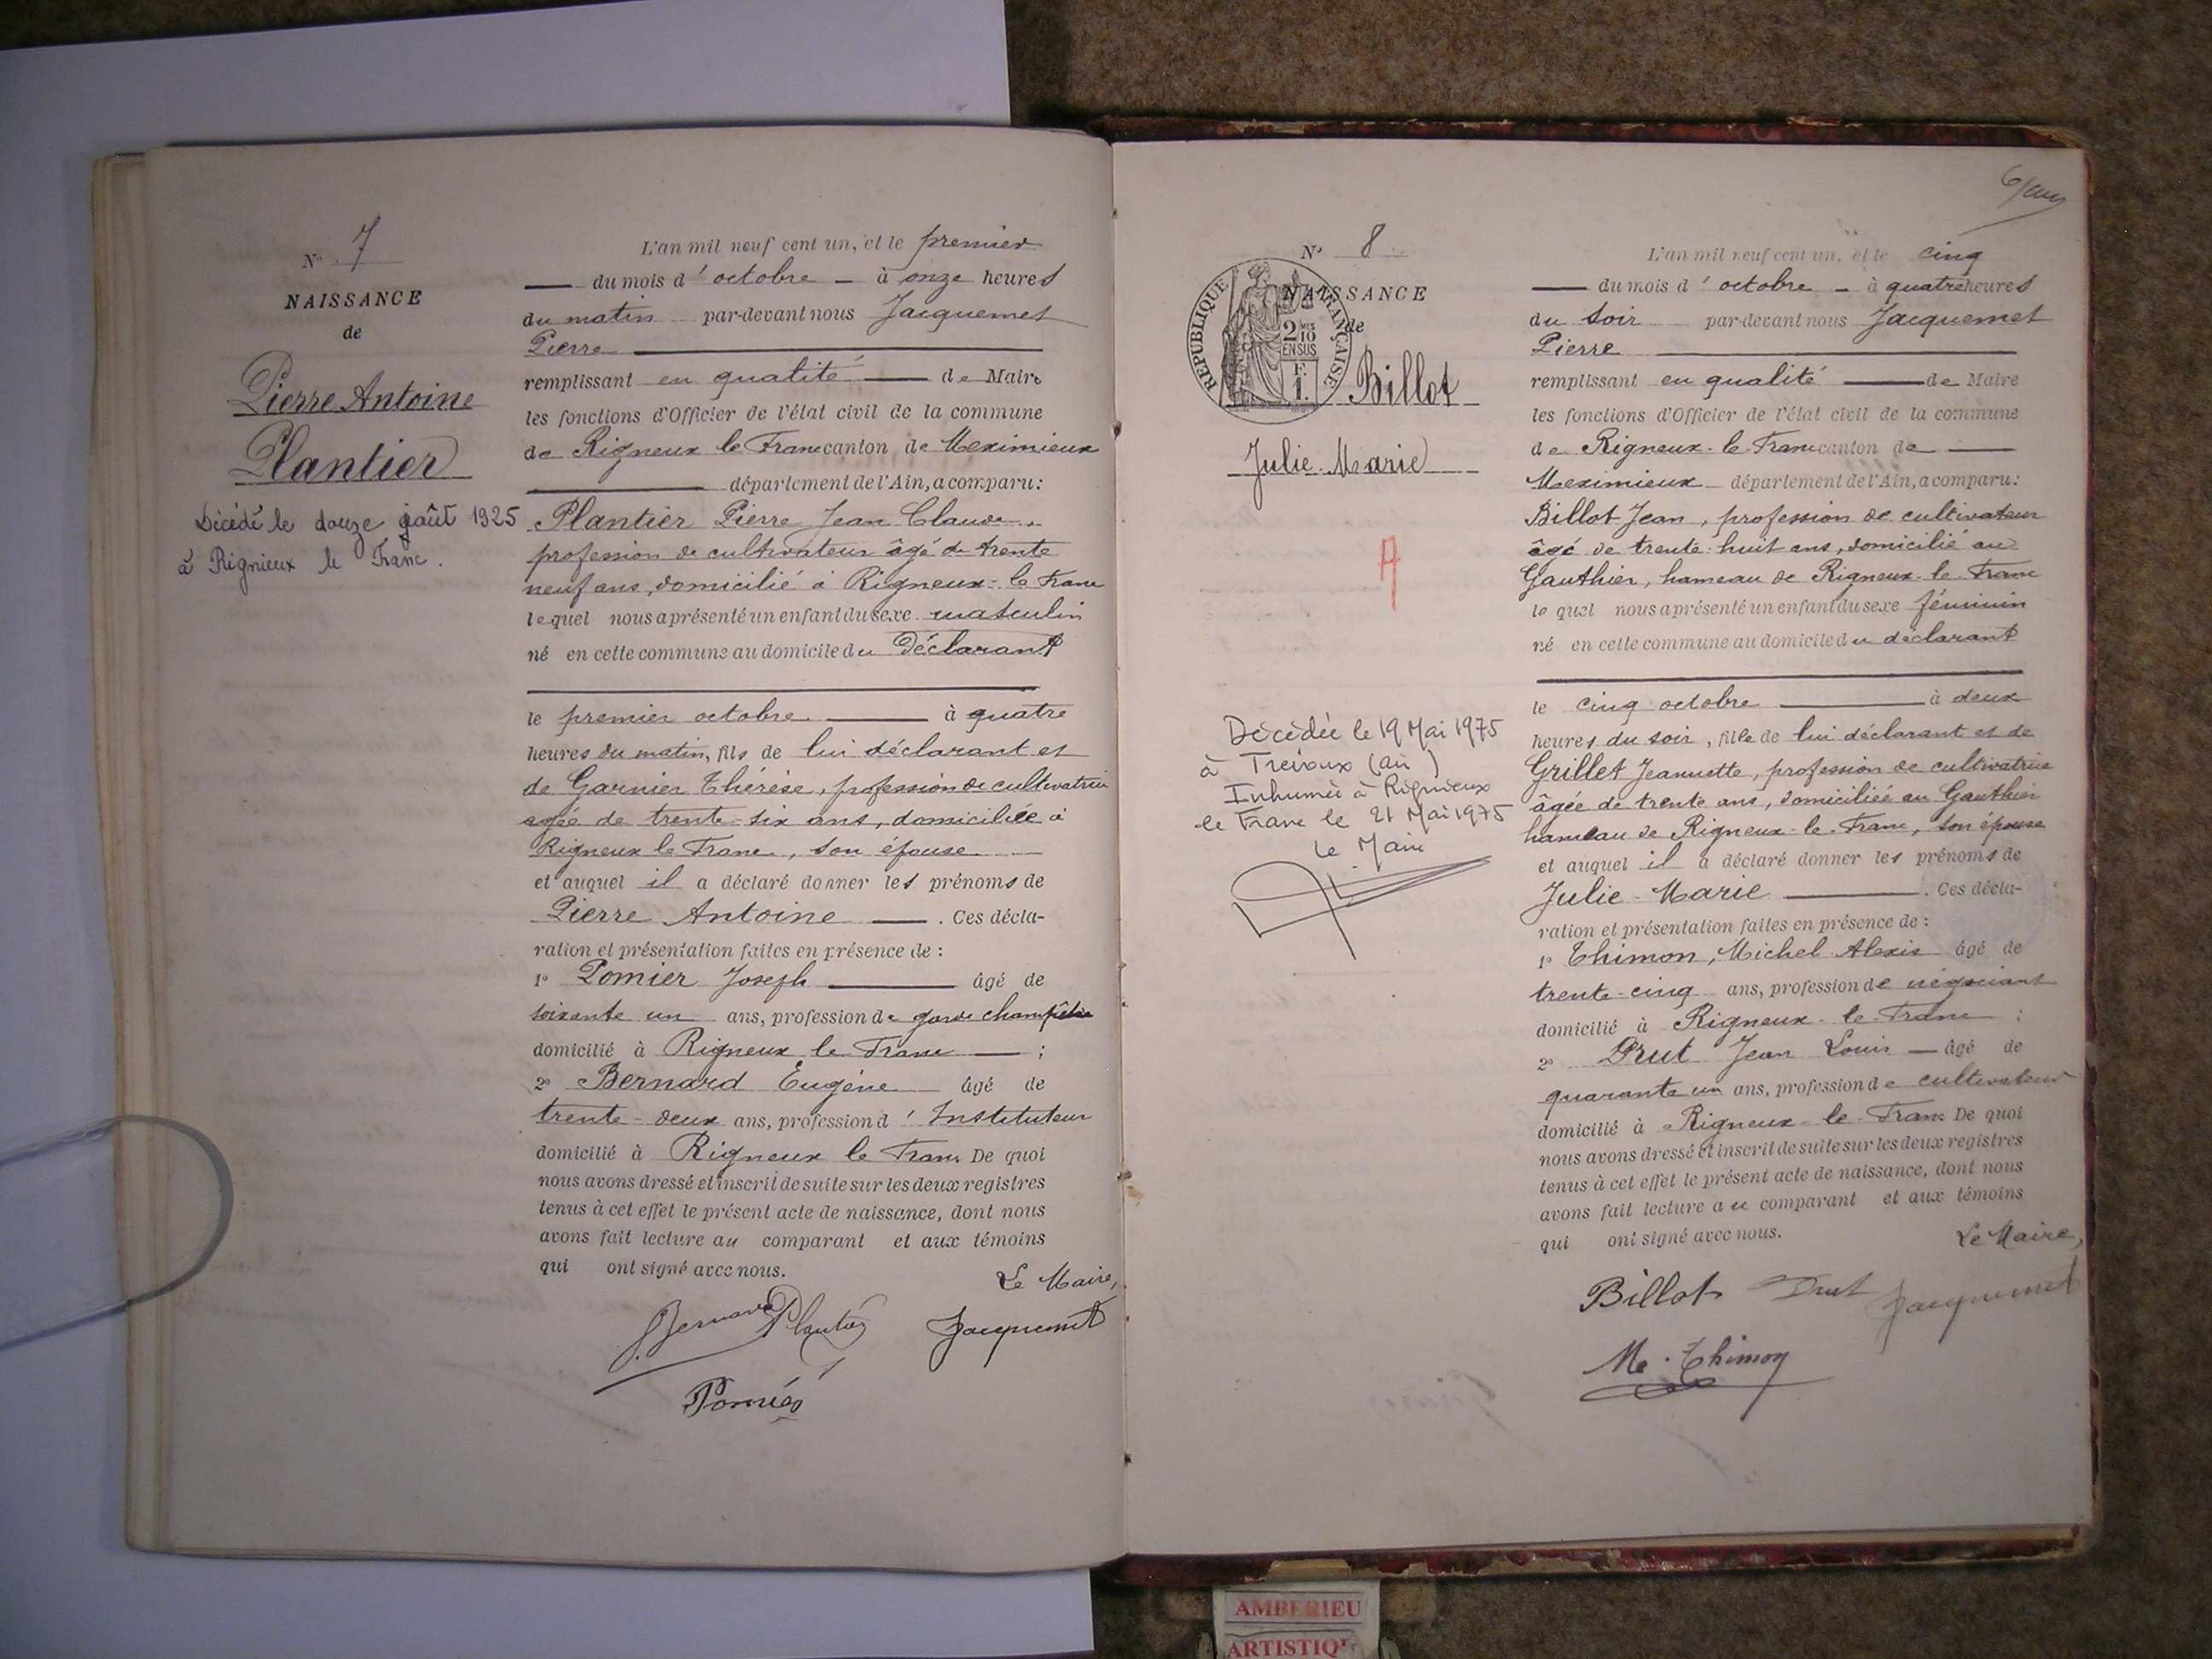 N° 7
NAISSANCE
de
Pierre Antoine
Plantier
Décédé le douze août 1925
à Rignieux le Franc.
L'an mil neuf cent un, et le premier
du mois d'octobre à onze heures
du matin par-devant nous Jacquemet
Pierre
remplissant en qualité de Maire
les fonctions d'Officier de l'état civil de la commune
de Rigneux le Franc canton de Meximieux
département de l'Ain, a comparu:
Plantier Pierre Jean Claude,
profession de cultivateur âgé de trente
neuf ans, domicilié à Rigneux-le Franc
lequel nous a présenté un enfant du sexe masculin
né en cette commune au domicile du Déclarant
le premier octobre à quatre
heures du matin, fils de lui déclarant et
de Garnier Thérèse, profession de cultivatrice
agée de trente-six ans, domiciliée à
Rigneux le Franc, son épouse
et auquel il a déclaré donner les prénoms de
Pierre Antoine . Ces décla-
ration et présentation faites en présence de :
1° Pomier Joseph âgé de
soixante un ans, profession de garde champêtre
domicilié à Rigneux le Franc ;
2° Bernard Eugène âgé de
trente-deux ans, profession d'Instituteur
domicilié à Rigneux le Franc De quoi
nous avons dressé et inscrit de suite sur les deux registres
tenus à cet effet le présent acte de naissance, dont nous
avons fait lecture au comparant et aux témoins
qui ont signé avec nous.
Le Maire,
Bernard Plantier Jacquemet
Pomier
6/
N° 8
NAISSANCE
de
REPUBLIQUE FRANÇAISE
2 MES 10
EN SUS
F.
1.
Billot
Julie-Marie
A
Décédée le 19 Mai 1975
à Trévoux (ain)
Inhumée à Rignieux
le Franc le 21 Mai 1975
Le Maire
L'an mil neuf cent un, et le cinq
du mois d'octobre - à quatre heures
du soir par-devant nous Jacquemet
Pierre
remplissant en qualité de Maire
les fonctions d'Officier de l'état civil de la commune
de Rigneux-le-Franc canton de
Meximieux département de l'Ain, a comparu:
Billot Jean, profession de cultivateur
âgé de trente-huit ans, domicilié au
Gauthier, hameau de Rigneux-le-Franc
lequel nous a présenté un enfant du sexe féminin
né en cette commune au domicile du déclarant
le cinq octobre à deux
heures du soir, fille de lui déclarant et de
Grillet Jeannette, profession de cultivatrice
âgée de trente ans, domiciliée au Gauthier
hameau de Rigneux-le-Franc, son épouse
et auquel il a déclaré donner les prénoms de
Julie-Marie . Ces décla-
ration et présentation faites en présence de :
1° Thimon, Michel Alexis âgé de
trente-cinq ans, profession de négociant
domicilié à Rigneux-le-Franc ;
2° Drut Jean Louis âgé de
quarante un ans, profession de cultivateur
domicilié à Rigneux-le-Franc De quoi
nous avons dressé et inscrit de suite sur les deux registres
tenus à cet effet le présent acte de naissance, dont nous
avons fait lecture au comparant et aux témoins
qui ont signé avec nous.
Le Maire,
Billot Drut Jacquemet
Me. Thimon
AMBERIEU
ARTISTIQU